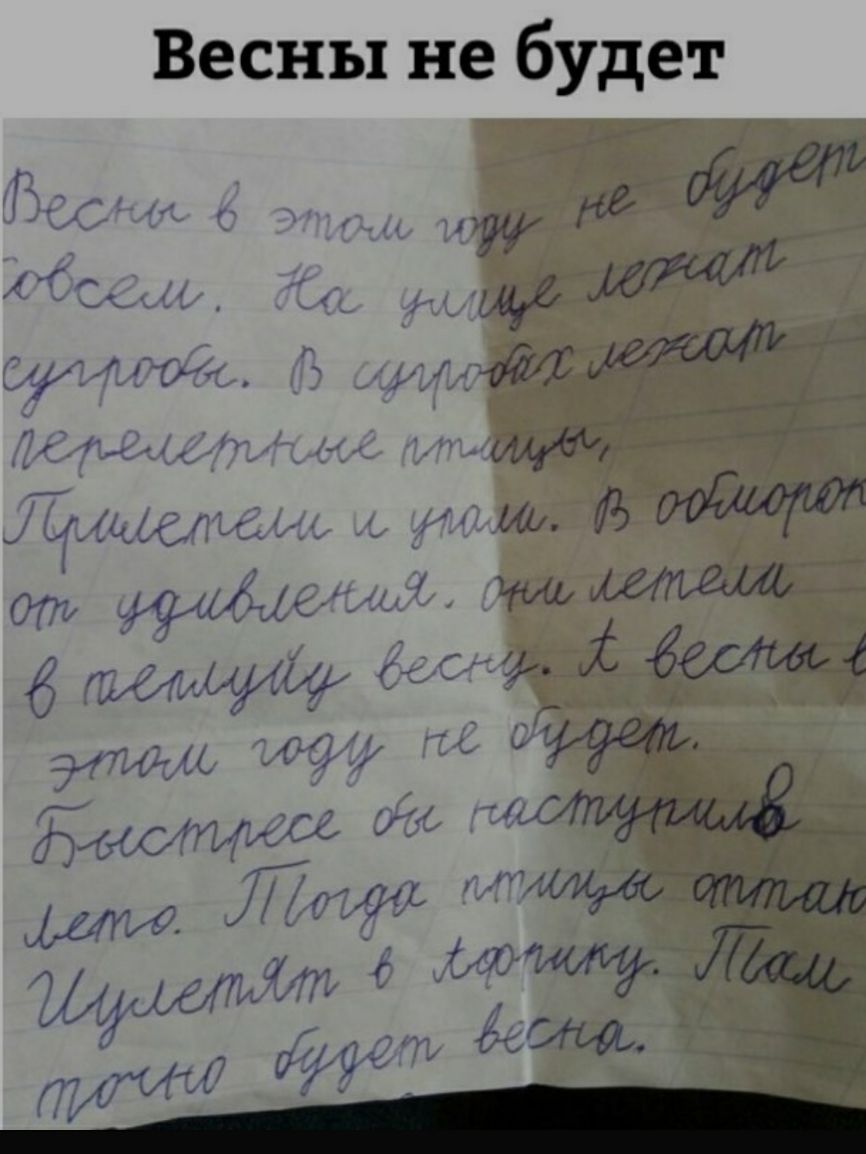 Весны не будет
Весны в этом году не будет
Совсем. На улице лежат
сугробы. В сугробах лежат
перелетные птицы,
Прилетели и упали. В обморок
от удивления. они летели
в теплуйу весну. А весны в
этом году не будет.
Быстрее бы наступило
лето. Тогда птицы оттаю
Иулетят в Африку. Там
точно будет весна.